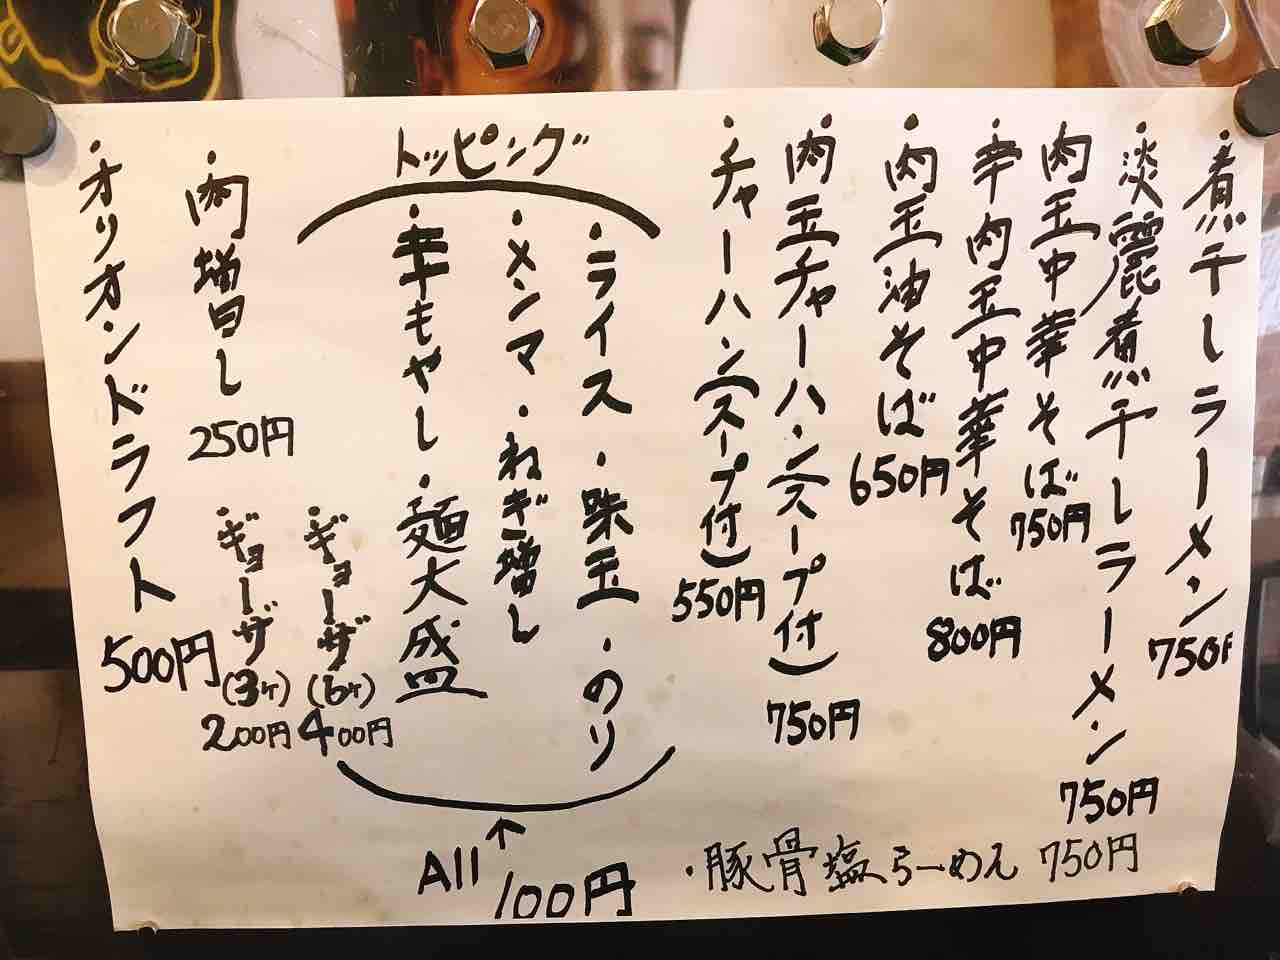 ・煮干しラーメン 750円
・淡麗煮干しラーメン 750円
・肉玉中華そば 750円
・辛肉玉中華そば 800円
・肉玉油そば 650円
・肉玉チャーハン(スープ付) 750円
・チャーハン(スープ付) 550円
トッピング
・ライス・味玉・のり
・メンマ・ねぎ増し
・辛もやし・麺大盛
↑
All 100円
・肉増し 250円
・ギョーザ(6ヶ) 400円
・ギョーザ(3ヶ) 200円
・オリオンドラフト 500円
・豚骨塩らーめん 750円